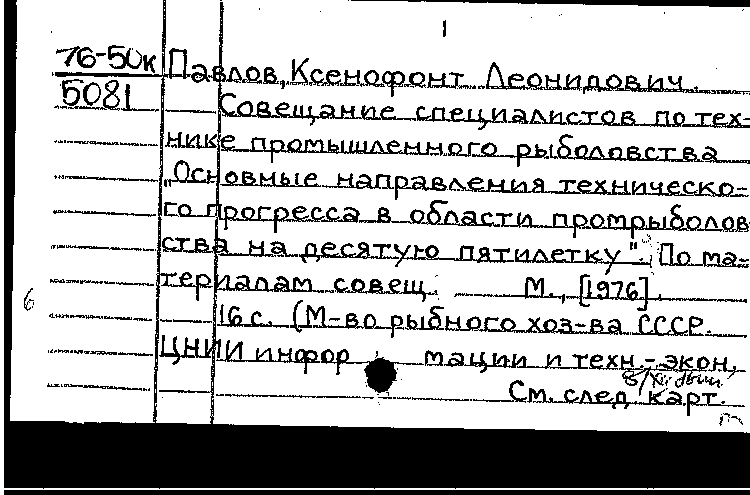 1
76-50к
5081
Павлов, Ксенофонт Леонидович.
Совещание специалистов по тех-
нике промышленного рыболовства
"Основные направления техническо-
го прогресса в области промрыболов
ства на десятую пятилетку". По ма-
териалам совещ. М., [1976].
16 с. (М-во рыбного хоз-ва СССР.
ЦНИИ информации и техн.-экон.
См. след. карт.
6